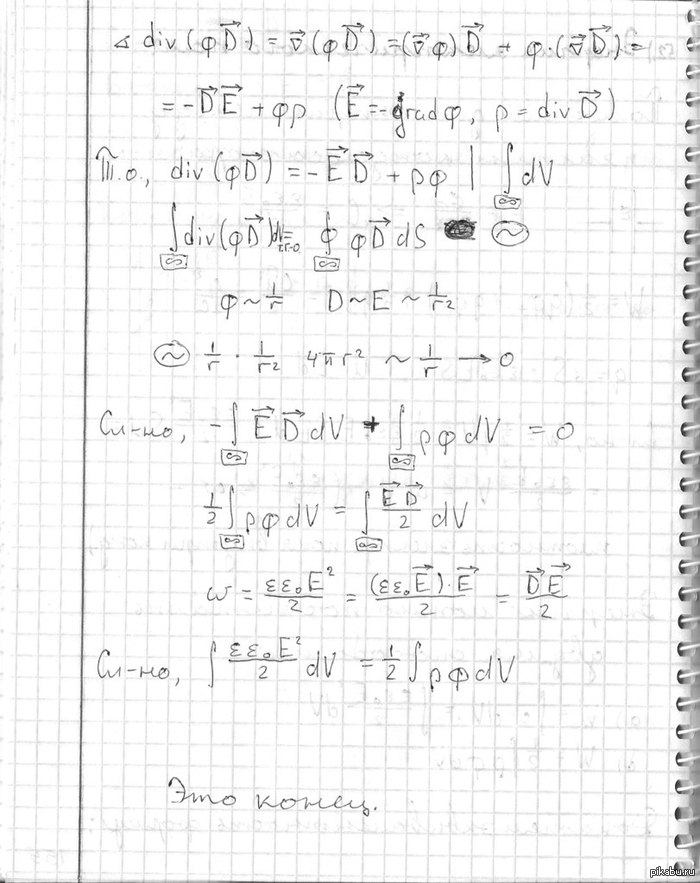 ∢ div(φD⃗) = ∇⃗(φD⃗) = (∇⃗φ)D⃗ + φ·(∇⃗D⃗) =
= -D⃗E⃗ + φρ (E⃗ = -gradφ, ρ = div D⃗)
Т.о., div(φD⃗) = -E⃗D⃗ + ρφ | ∫ dV
∞
∫div(φD⃗)dV = т.Г-О ∮ φD⃗dS ~
∞ ∞
φ ~ 1/r D ~ E ~ 1/r²
~ 1/r · 1/r² 4πr² ~ 1/r → 0
Сл-но, -∫ E⃗D⃗dV + ∫ ρφdV = 0
∞ ∞
1/2 ∫ρφdV = ∫ E⃗D⃗/2 dV
∞ ∞
w = εε₀E²/2 = (εε₀E⃗)·E⃗/2 = D⃗E⃗/2
Сл-но, ∫ εε₀E²/2 dV = 1/2 ∫ρφdV
Это конец.
pikabu.ru